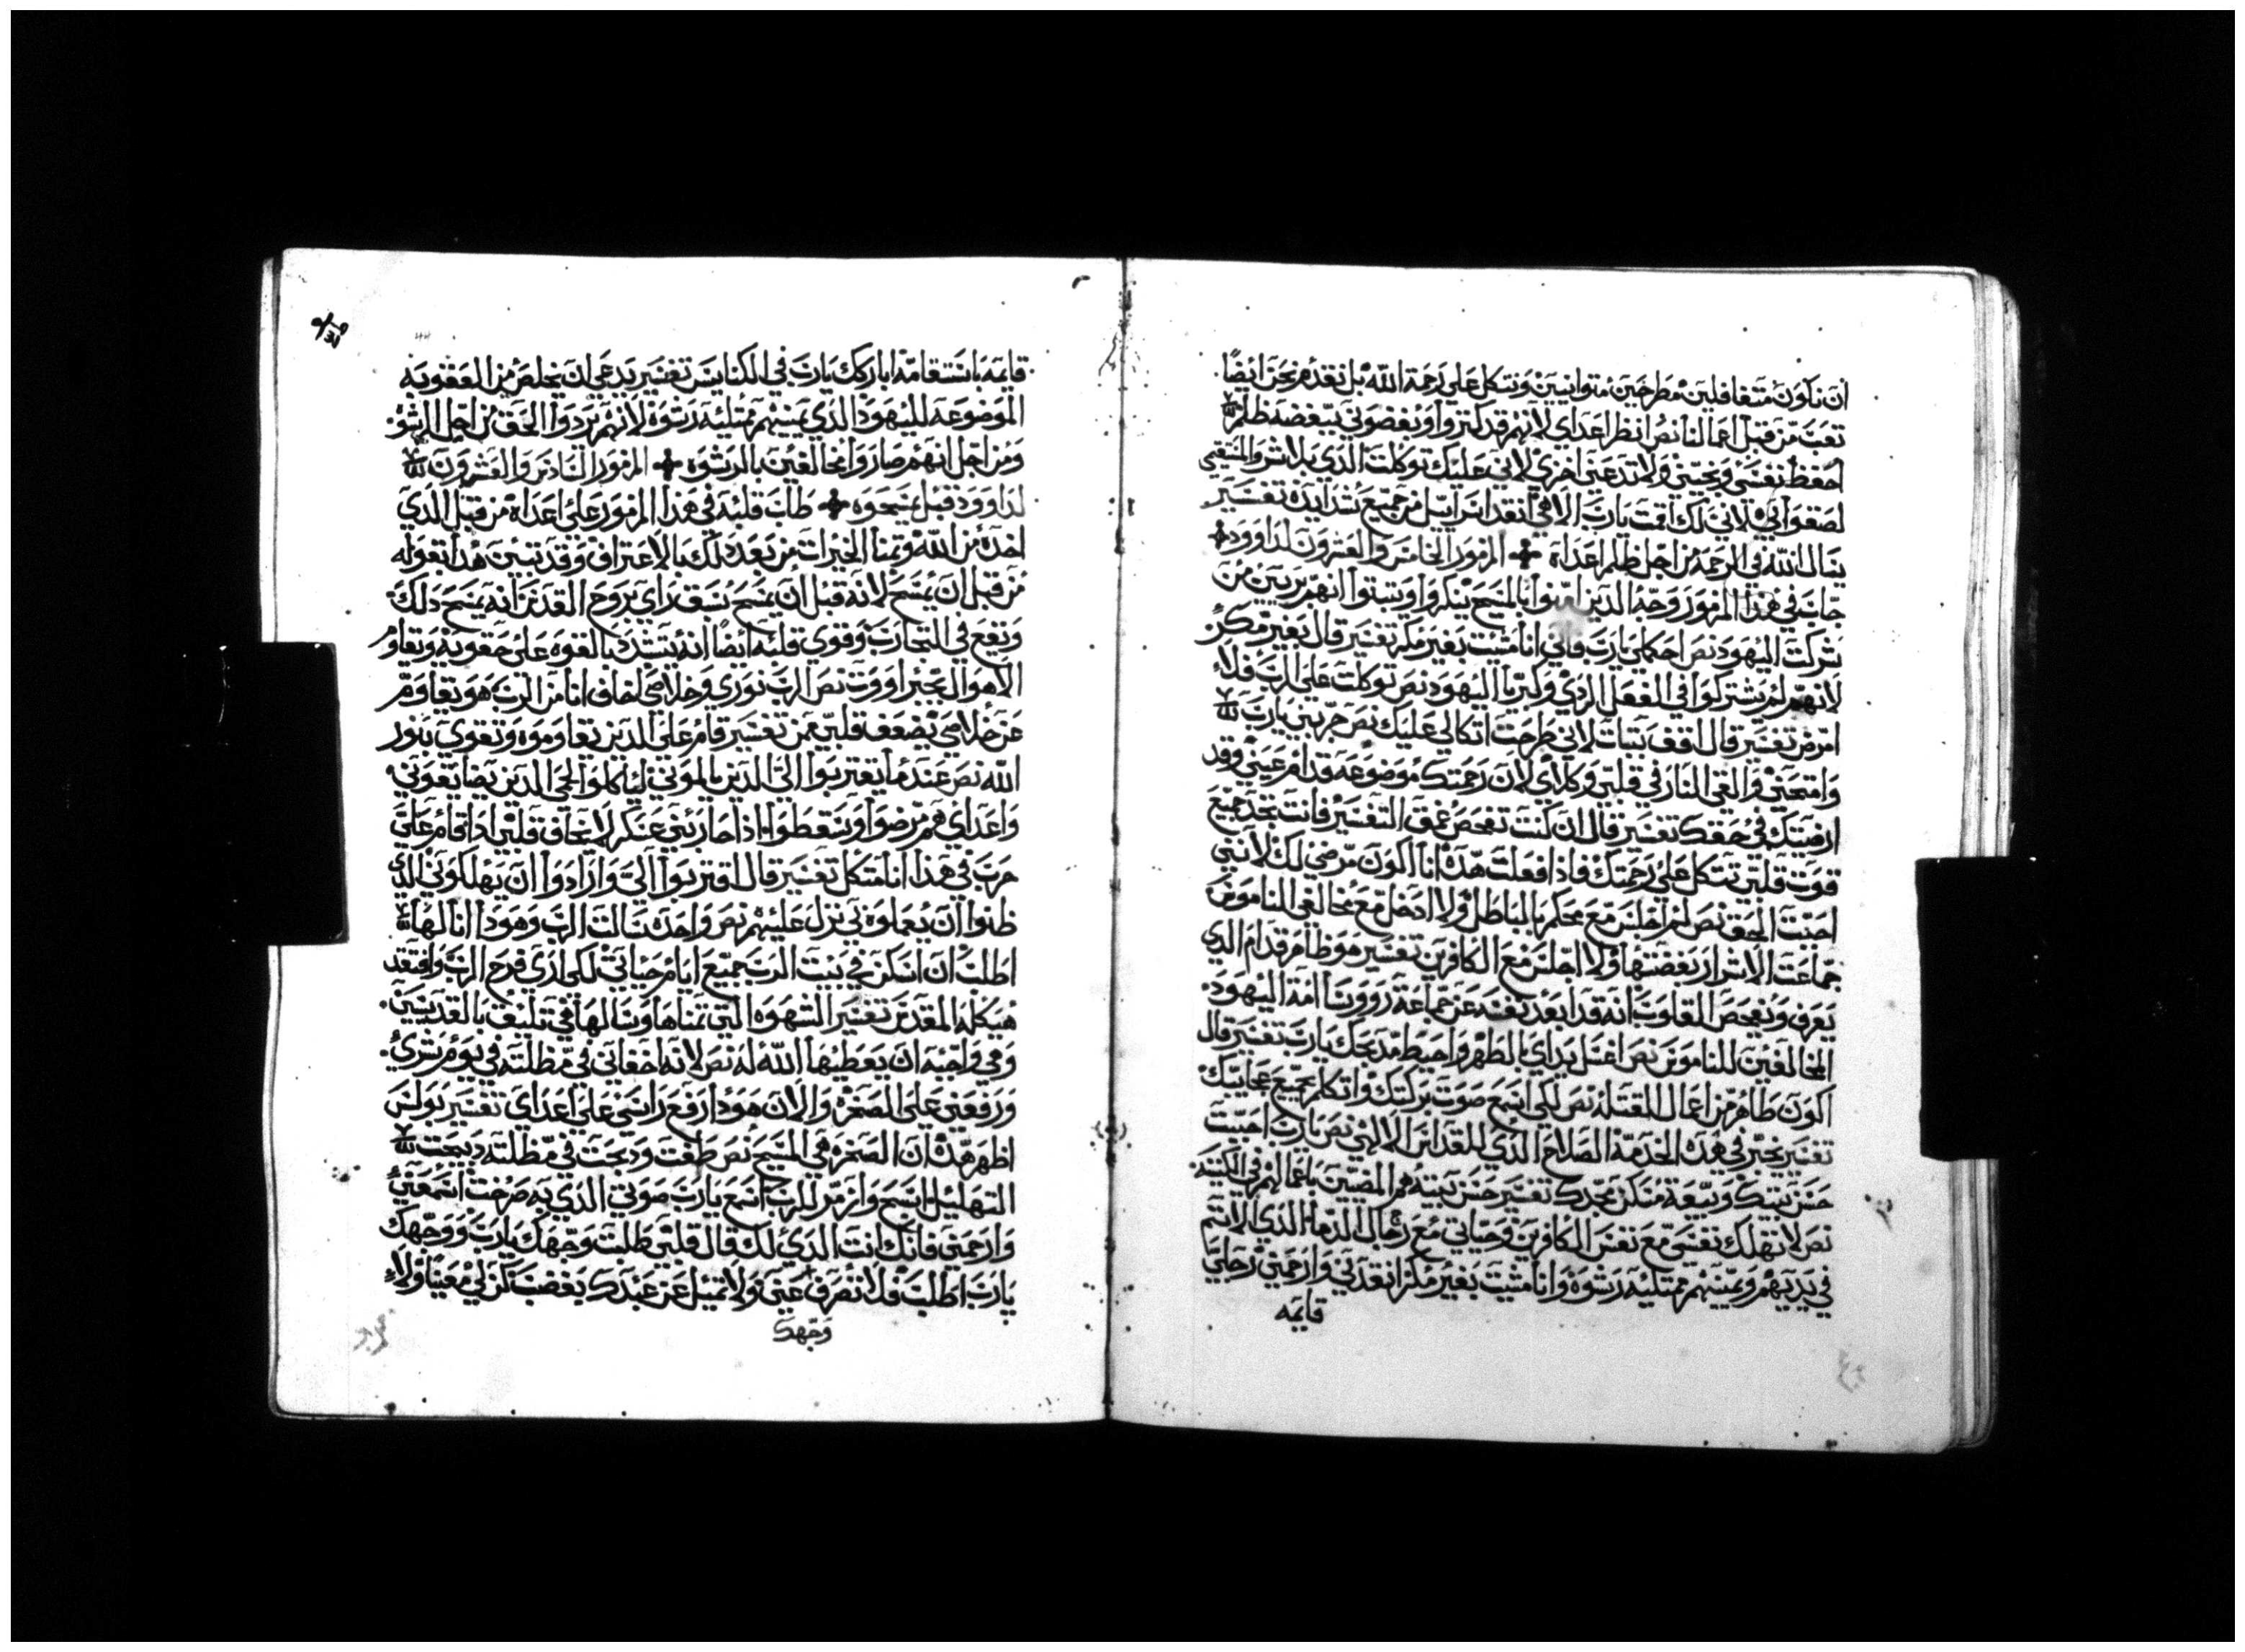 ان نكون متغافلين مطرحين متوانيين ونتكل على رحمة الله بل نقدم نحن ايضا
تعب من قبل اعمالنا نص انظر اعداي لانهم قد كتروا وبغضوني ببغضه ظلم
احفظ نفسي ونجيني ولا تدعني اخزي لاني عليك توكلت الذي بلا شر والمستقيمي
لصقوا بي لاني لك اقمت يارب الاهي انقد اسراييل من جميع شدايده تفسير
يسال الله في الرحمه من اجل ظلم اعداه المزمور الخامس والعشرون لداوود
جاب في هذا المزمور وجه الذين امنوا بالمسيح ينكروا ويتبتوا انهم بريين من
شركت اليهود نص احكملي يارب فاني انا مشيت بغير مكر تفسير قال بغير مكر
لانهم لم يشتركوا في الفعل الردي وكبريا اليهود نص توكلت على الرب فلا
امرض تفسير قال اقف بتبات لاني طرحت اتكالي عليك نص جربني يارب
وامتحني والقي النار في قلبي وكلاي لان رحمتك موضوعه قدام عيني وقد
ارضيتك في حقك تفسير قال ان كنت تفحص عمق التفسير فانت تجد جميع
قوت قلبي تتكل على رحمتك فاذا فعلت هذه انا اكون مرضي لك لانني
احببت الحق نص لم اجلس مع محكم بالباطل ولا ادخل مع مخالفي الناموس
جماعت الاشرار بغضتها ولا اجلس مع الكافرين تفسير هو طاهر قدام الذي
يعرف ويفحص القلوب انه قد ابعد نفسه عن جماعة رووسا امة اليهود
المخالفين للناموس نص اغسل يداي بالطهر واحيط مدبحك يارب تفسير قال
اكون طاهر من اعمال القتله نص لكي اسمع صوت بركتك واتكلم بجميع عجايبك
تفسير يخبر في هذه الخدمة الصلاح الذي للقداس الالهي نص يارب احببت
حسن بيتك وبيعة مسكن مجدك تفسير حسن بيته هم المضيين باعمالهم في الكنيسة
نص لا تهلك نفسي مع نفس الكافرين وحياتي مع رجال الدما الذي الاتم
في يديهم ويمينهم ممتليه رشوه وانا مشيت بغير مكر انقدني وارحمني رجلي
قايمه
قايمه باستقامه اباركك يارب في الكنايس تفسير يدعي ان يخلص من العقوبه
الموضوعه لليهود الذي يمينهم ممتليه رشوة لانهم يردوا الحق من اجل الرشوه
ومن اجل انهم صاروا مخالفين بالرشوه المزمور السادس والعشرون
لداوود قبل يمسحوه طاب قلبه في هذا المزمور على اعداه من قبل الذي
اخده من الله وتمنا الخيرات من بعد ذلك بالاعتراف وقد تبين هذا بقوله
من قبل ان يمسح لانه قبل ان يمسح سبق راي بروح القدس انه يمسح ذلك
ويقع في التجارب وقوي قلبه ايضا انه يتشدد بالقوه على صعوبة ويقاوم
الاهوال نص الرب نوري وخلاصي لخاف انا من الرب هو يقاوم
عن خلاصي يضعف قلبي ممن تفسير قام على الذين يقاوموه ويقوي بنور
الله نص عندما يقتربوا الي الذين بالموتي لياكلوا لحمي الذين يضايقوني
واعداي هم مرضوا وسقطوا اذا حاربني عسكر لا يخاف قلبي اذا قام علي
حرب في هذا انا متكل تفسير قال اقتربوا الي وارادوا ان يهلكوني الذي
ظنوا ان يعملوه بي نزل عليهم نص واحده سالت الرب وهودا انا لها
اطلب ان اسكن في بيت الرب جميع ايام حياتي لكي اري فرح الرب وافتقد
هيكله المقدس تفسير الشهوه التي تمناها وسالها في تليق بالقديسين
وهي واجبه ان يعطيها الله له نص لانه اخفاني في مظلته في يوم شري
ورفعني على الصخره والان هودا رفع راسي على اعداي تفسير بولس
اظهر هذه ان الصخره هي المسيح نص طفت ودبحت في مظلته دبيحت
التهليل اسبح وازمر للرب اسمع يارب صوتي الذي به صرخت اسمعني
وارحمني فانك انت الذي لك قال قلبي طلبت وجهك يارب ووجهك
يارب اطلب فلا تصرف عني ولا تميل عن عبدك بغضب كن لي معينا ولا
وجهك